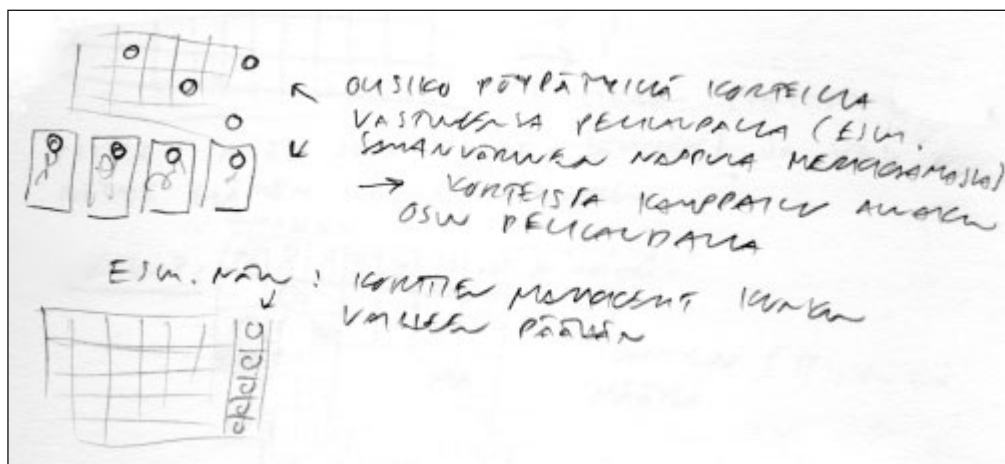 OLISIKO PÖYDÄTYILLÄ KORTEILLA
VASTINEENSA PELILAUDALLA (ESIM.
SAMANVÄRINEN NAPPULA MERKKAAMASSA)
→ KORTEISTA KAMPPAILU
OSIN PELILAUDALLA
ESIM. NÄIN: KORTTIEN KUNKIN
PÄÄHÄN